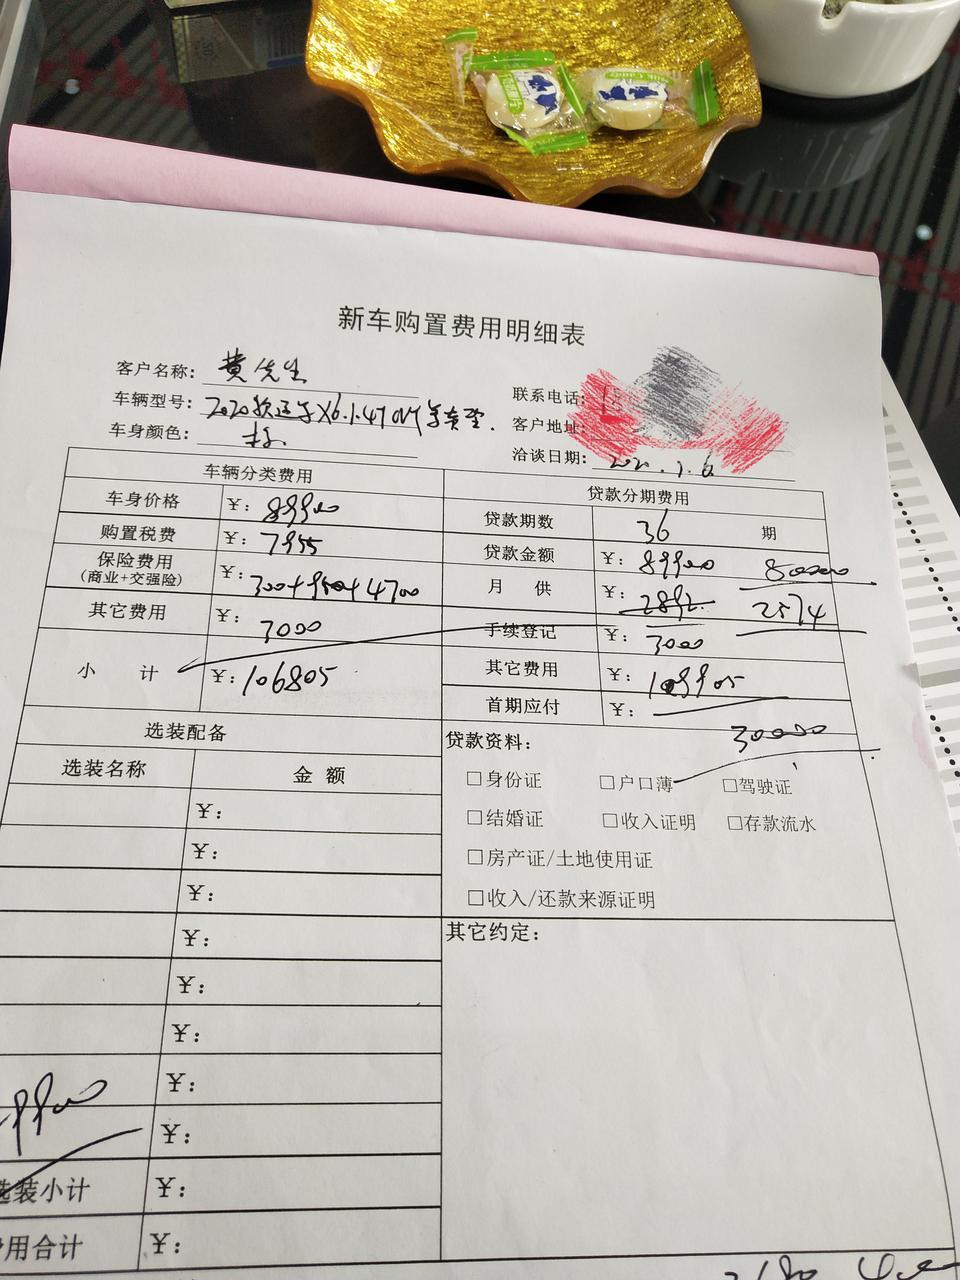 新车购置费用明细表
客户名称： 黄先生
联系电话：
车辆型号： 2020款
客户地址：
车身颜色：
洽谈日期： 2020.7.6
车辆分类费用
贷款分期费用
车身价格 ¥：89900
贷款期数 36 期
购置税费 ¥：7955
贷款金额 ¥：89900 80000
保险费用（商业+交强险） ¥：300+950+4700
月 供 ¥：2892 2574
其它费用 ¥：3000
手续登记 ¥：3000
小 计 ¥：106805
其它费用 ¥：109905
首期应付 ¥：
30000
选装配备
贷款资料：
选装名称 金额
□身份证 □户口薄 □驾驶证
¥：
□结婚证 □收入证明 □存款流水
¥：
□房产证/土地使用证
¥：
□收入/还款来源证明
¥：
其它约定：
¥：
¥：
¥：
¥：
选装小计 ¥：
用合计 ¥：